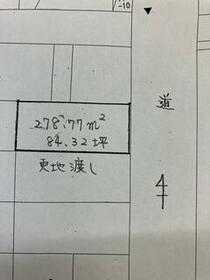 -10
278.77m²
84.32坪
更地渡し
道